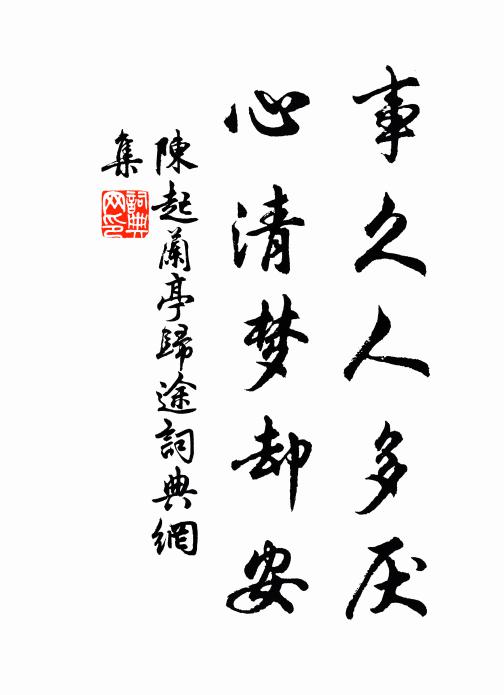 事久人多厌
心清梦却安
陳起蘭亭歸途詞典網
集
詞典
网印